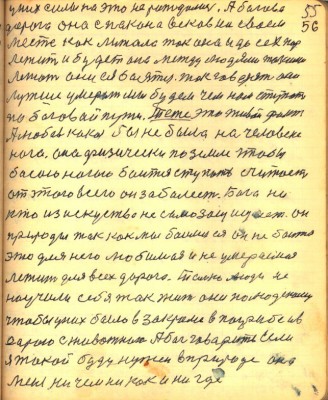 55
56
у них силы на это на
дорога она спакона веков на своем
месте как лежала так она и до сех пор
лежит и будет она между людями
лежать они се боятся. так говорят они
лучше умерат мы будем чем нам ступать
по боговой пути. Тетс это живой факт
А любов какая бы не была на человеке
нога, она физически по земле чтобы
босою ногою боится ступать считает
от этого всего он заболеет. Бога ни
кто из искуство не самозащищает. он
природы так как мы боимся он не боится
это для него любимая и не умераемая
лежит для всех дорога. Только люди не
научили себя так жить они по
чтобы у них было в закроме в погребе и в
сараю с животном. А бог говорить если
я такой буду нужен в природе она
меня ни чем ни как и ни где